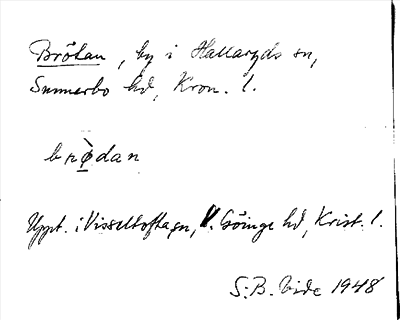 Brötan, by i Hallaryds sn,
Sunnerbo hd, Kron. l.
brø̀dan
Uppt. i Visseltofta sn, V. Göinge hd, Krist. l.
S.B. Vide 1948